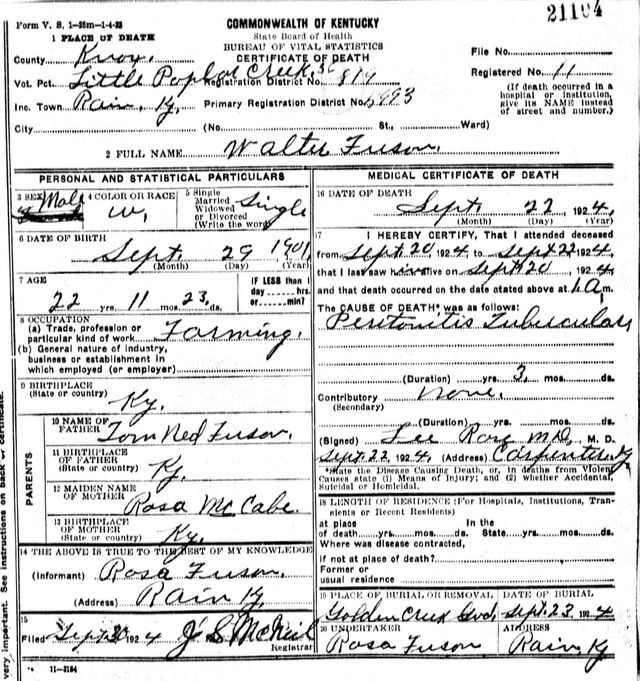 Form V. S. 1-25m-1-4-23
21104
COMMONWEALTH OF KENTUCKY
State Board of Health
BUREAU OF VITAL STATISTICS
CERTIFICATE OF DEATH
1 PLACE OF DEATH
County Knox
File No.
Vot. Pct. Little Poplar Creek Registration District No. 819
Registered No. 11
Inc. Town Rain, Ky. Primary Registration District No. 6993
(If death occurred in a hospital or institution, give its NAME instead of street and number.)
City (No. St., Ward)
2 FULL NAME Walter Fuson.
PERSONAL AND STATISTICAL PARTICULARS
3 SEX Male
4 COLOR OR RACE W.
5 Single Married Widowed or Divorced (Write the word) Single
6 DATE OF BIRTH
Sept. 29 1901
(Month) (Day) (Year)
7 AGE
22 yrs. 11 mos. 23 ds.
IF LESS than 1 day hrs. or min?
8 OCCUPATION
(a) Trade, profession or particular kind of work Farming.
(b) General nature of industry, business or establishment in which employed (or employer)
9 BIRTHPLACE
(State or country) Ky.
PARENTS
10 NAME OF FATHER Tom Ned Fuson.
11 BIRTHPLACE OF FATHER (State or country) Ky.
12 MAIDEN NAME OF MOTHER Rosa McCabe.
13 BIRTHPLACE OF MOTHER (State or country) Ky.
14 THE ABOVE IS TRUE TO THE BEST OF MY KNOWLEDGE
(Informant) Rosa Fuson.
(Address) Rain Ky.
15
Filed Sept. 30 1924 J. S. McNeil
Registrar
11-3184
MEDICAL CERTIFICATE OF DEATH
16 DATE OF DEATH
Sept. 22, 1924,
(Month) (Day) (Year)
17 I HEREBY CERTIFY, That I attended deceased
from Sept 20, 1924 to Sept 22 1924,
that I last saw him alive on Sept 20, 1924
and that death occurred on the date stated above at 1.a.m.
The CAUSE OF DEATH* was as follows:
Peritonitis Tubercular
(Duration) yrs. 3 mos. ds.
Contributory None.
(Secondary)
(Duration) yrs. mos. ds.
(Signed) Lee Rose M.D., M. D.
Sept. 22, 1924 (Address) Carpenter Ky
*State the Disease Causing Death, or, in deaths from Violent
Causes state (1) Means of Injury; and (2) whether Accidental,
Suicidal or Homicidal.
18 LENGTH OF RESIDENCE (For Hospitals, Institutions, Transients or Recent Residents)
at place of death yrs. mos. ds. In the State yrs. mos. ds.
Where was disease contracted,
if not at place of death?
Former or usual residence
19 PLACE OF BURIAL OR REMOVAL Golden Creek Gvd.
DATE OF BURIAL Sept. 23, 1924
20 UNDERTAKER Rosa Fuson
ADDRESS Rain Ky
very important. See instructions on back of certificate.